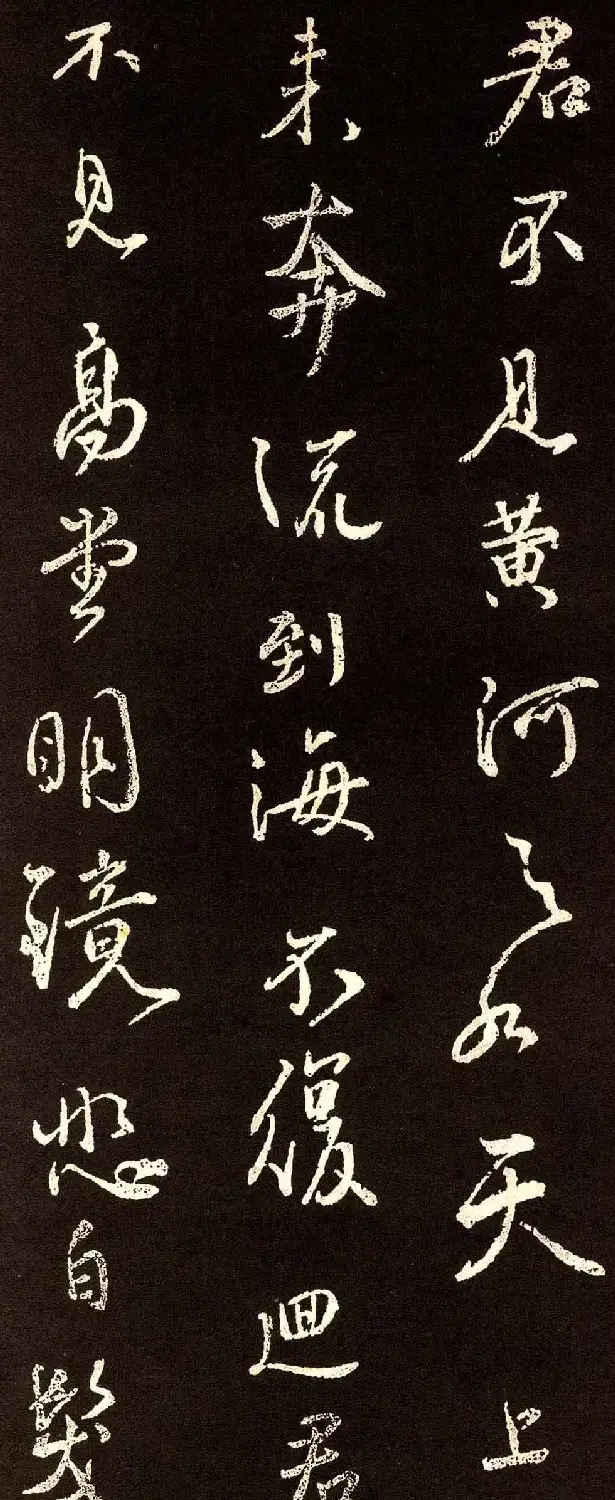 君不見黄河之水天上
来奔流到海不復迴君
不見高堂明鏡悲白髮